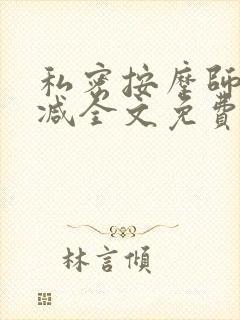 私密按摩師
减全文免費
林言傾